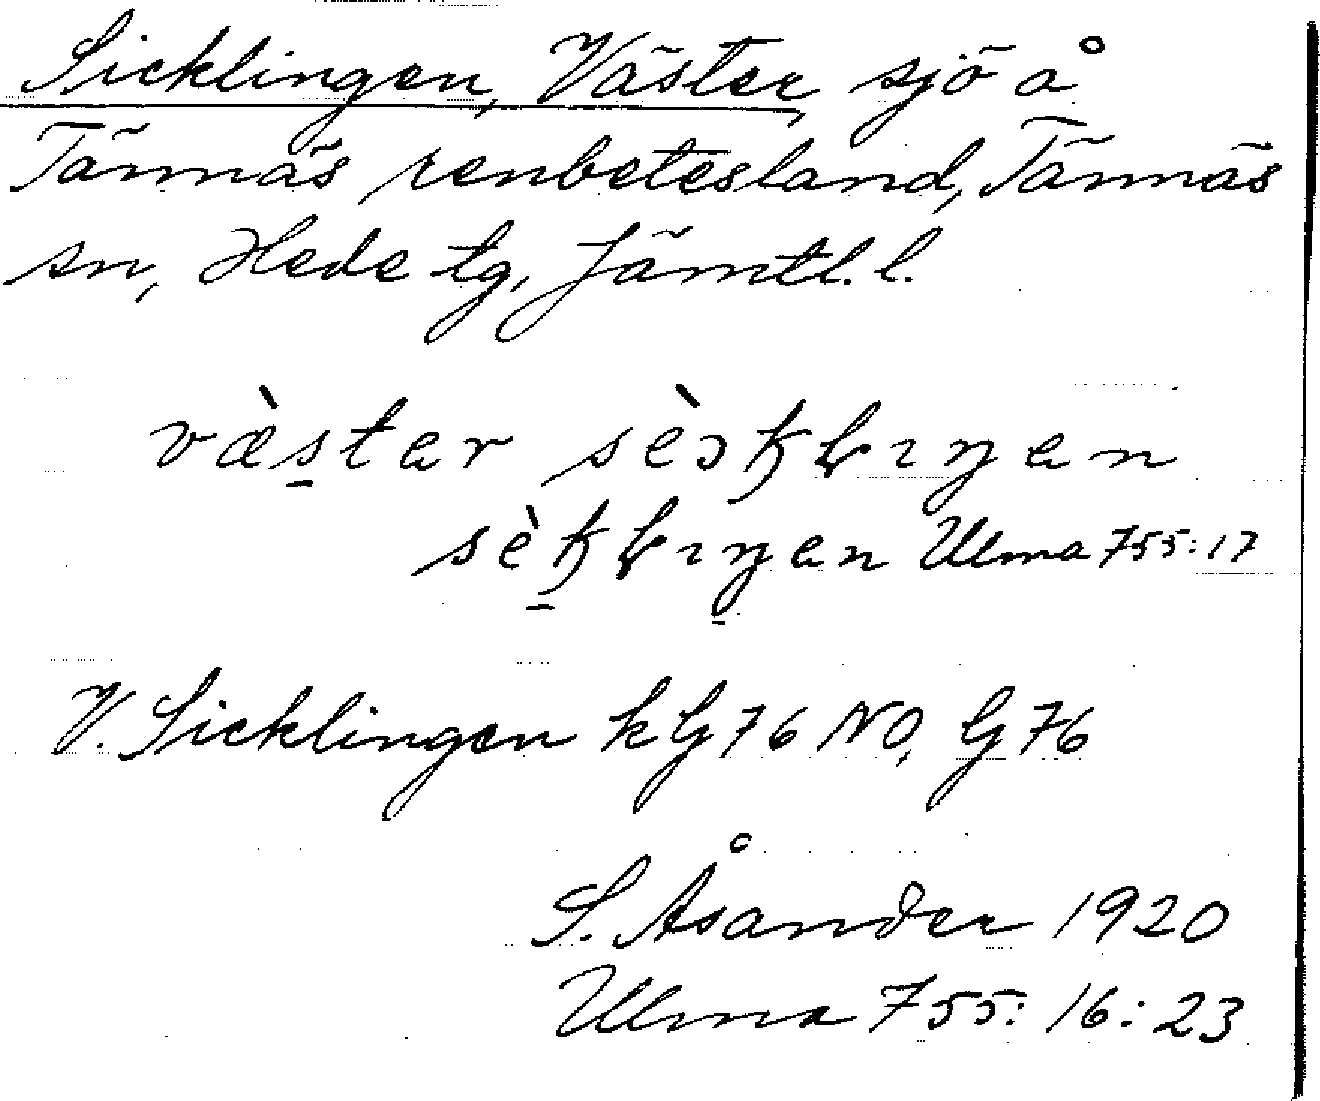 Sicklingen, Väster, sjö å
Tännäs renbetesland, Tännäs
sn, Hede tg, Jämtl. l.
væ̀ster
Ulma 755:17
V. Sicklingen kG76 NO, G76
S. Åsander 1920
Ulma 755: 16: 23